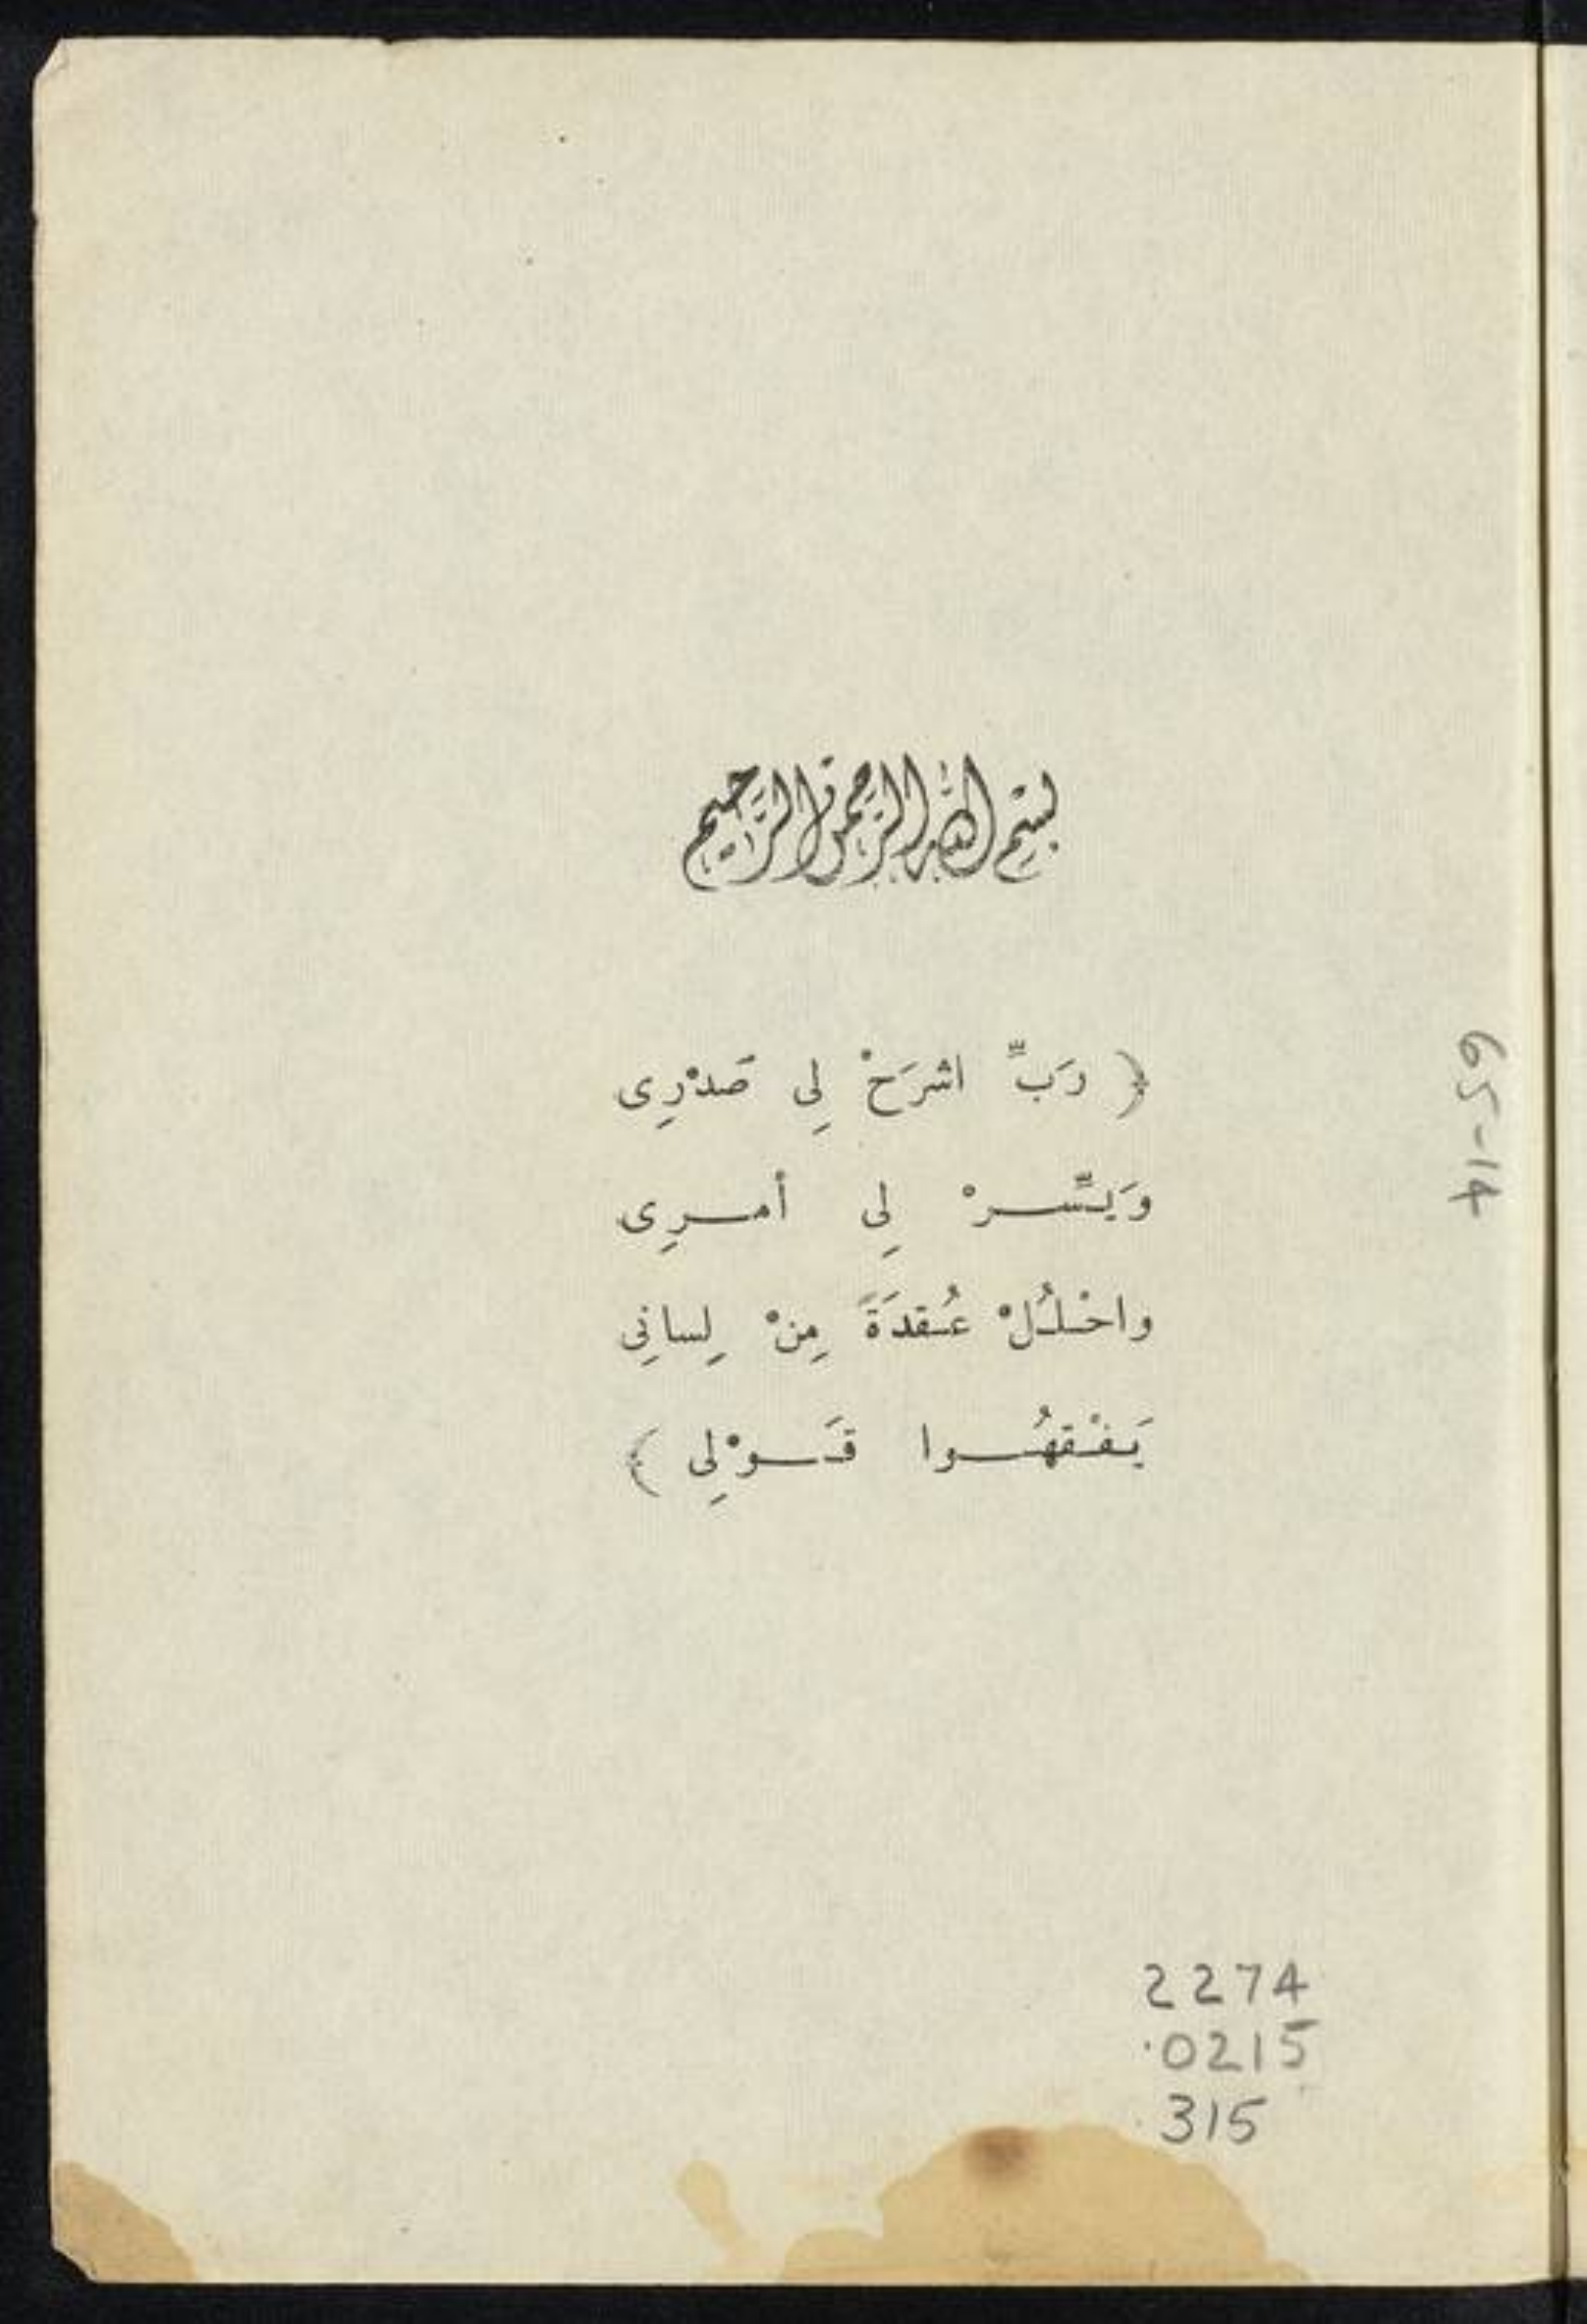 بسم الله الرحمن الرحيم
﴿ رَبِّ اشرَحْ لِى صَدْرِى
وَيَسِّرْ لِى أمرِى
واحْلُلْ عُقدَةً مِنْ لِسانِى
يَفْقَهُوا قَوْلِى ﴾
65-14
2274
.0215
.315